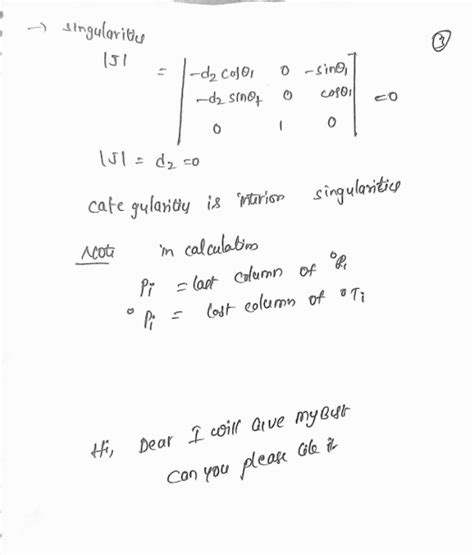 → singularities
③
|J|
= | -d₂ cosθ₁ 0 -sinθ₁ |
| -d₂ sinθ₁ 0 cosθ₁ | =0
| 0 1 0 |
|J| = d₂ =0
cate gularity is singularities
Note in calculation
Pi = last column of ⁰Ri
⁰Pi = last column of ⁰Ti
Hi, Dear I will Give my Best
can you please it